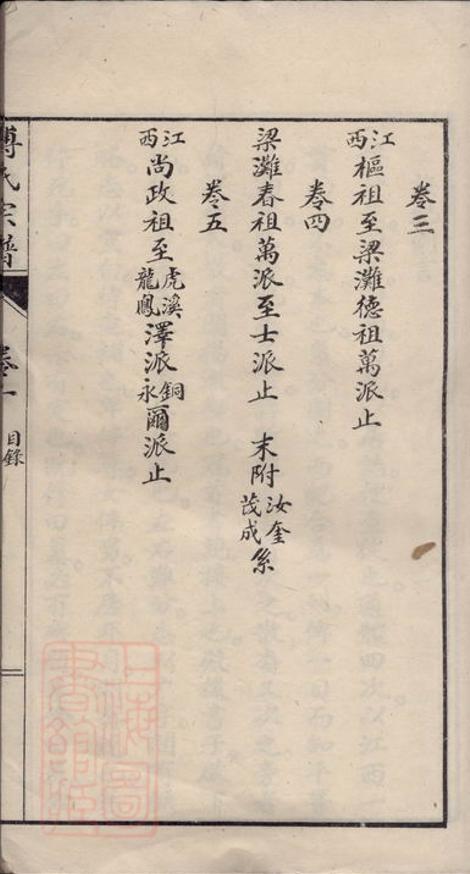 卷三
江西樞祖至梁灘德祖萬派止
卷四
梁灘春祖萬派至士派止　末附汝奎茂成系
卷五
江西尚政祖至虎溪龍鳳澤派銅永爾派止
傅氏宗譜
卷一
目錄
上海圖書館藏